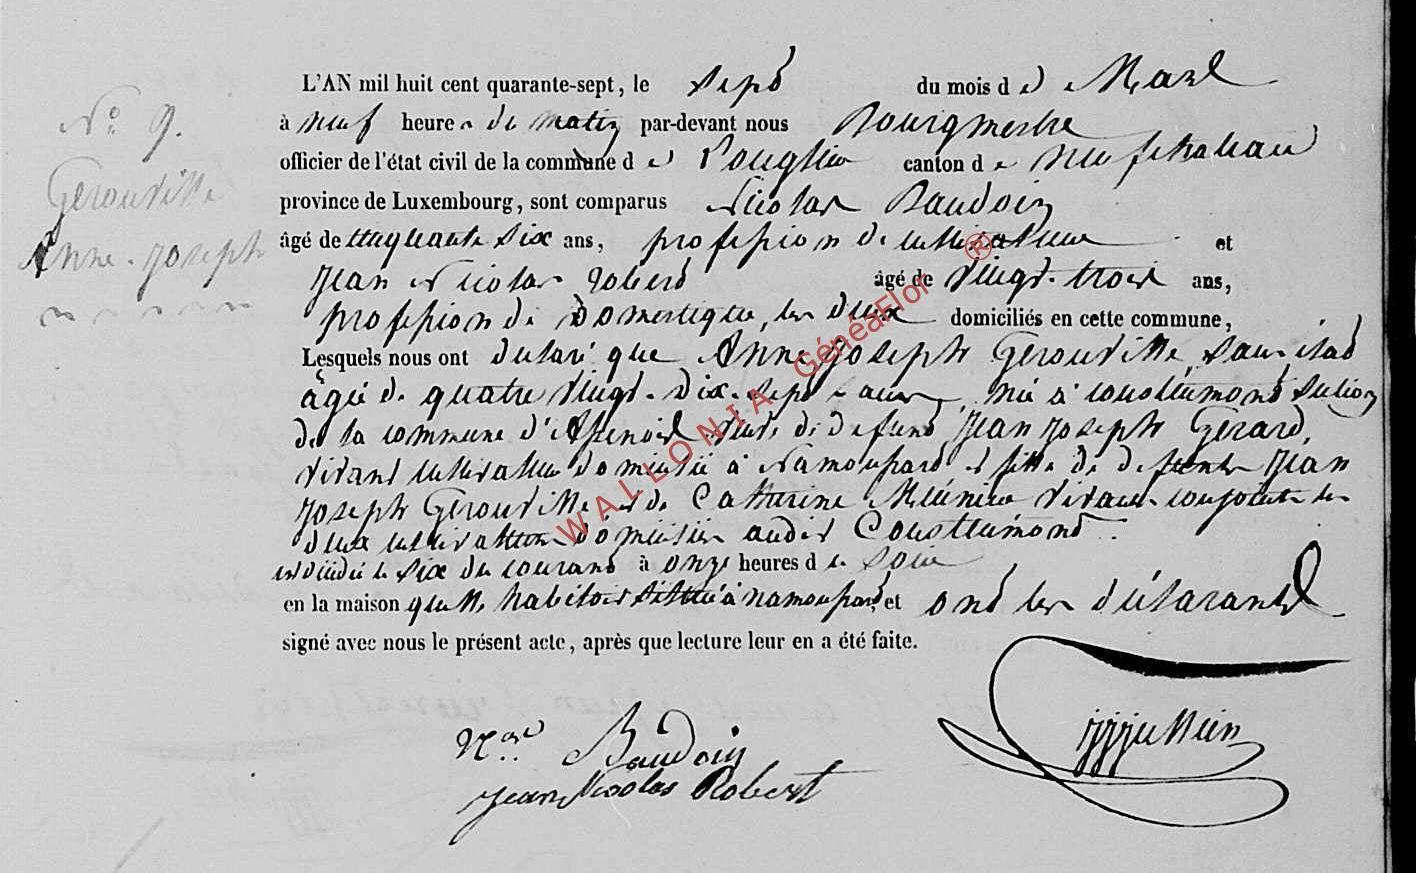 N° 9.
Gerouville
Anne-Joseph
L'AN mil huit cent quarante-sept, le sept du mois de Mars
à neuf heures du matin par-devant nous Bourgmestre
officier de l'état civil de la commune de canton de neufchateau
province de Luxembourg, sont comparus Nicolas Baudoin
âgé de cinquante six ans, profession de cultivateur et
Jean Nicolas Robert âgé de vingt-trois ans,
profession de Domestique, les deux domiciliés en cette commune,
Lesquels nous ont declaré que Anne Joseph Gerouville sans etat
agée de quatre vingt-dix-sept ans, née à Coustumont section
de la commune d'Assenois veuve de defunt Jean Joseph Gerard,
vivant cultivateur domicilié à Namoussart et fille de defunts Jean
Joseph Gerouville et de Catherine Meunier vivans conjoints les
deux cultivateurs domiciliés audit Coustumont.
est décédée le six du courant à onze heures du soir
en la maison qu'elle habitoit située à namoussart, et ont les déclarants
signé avec nous le présent acte, après que lecture leur en a été faite.
Baudoin
Jean Nicolas Robert
WALLONIA GénéaFlor ®